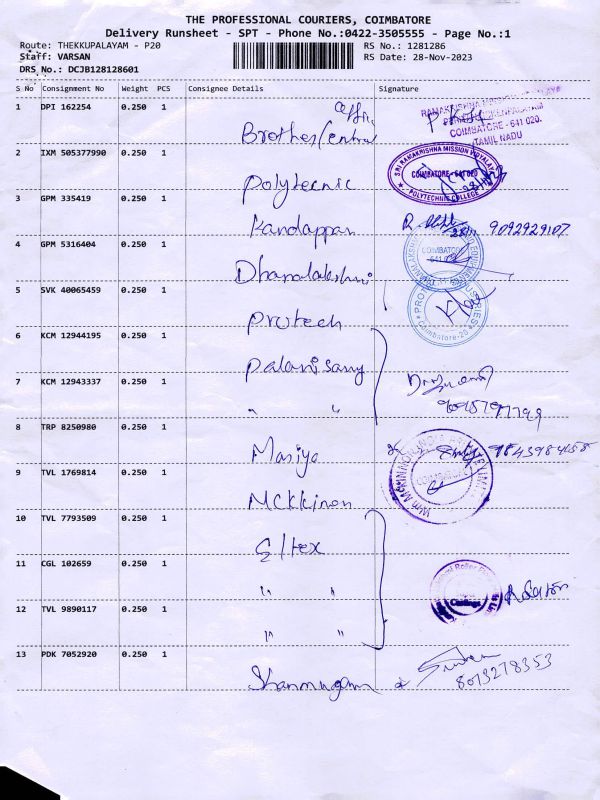 THE PROFESSIONAL COURIERS, COIMBATORE
Delivery Runsheet - SPT - Phone No.:0422-3505555 - Page No.:1
Route: THEKKUPALAYAM - P20
RS No.: 1281286
Staff: VARSAN
RS Date: 28-Nov-2023
DRS No.: DCJB128128601
S No Consignment No Weight PCS Consignee Details Signature
1 DPI 162254 0.250 1
Brother Central
COIMBATORE - 641 020.
TAMIL NADU
2 IXM 505377990 0.250 1
SRI RAMAKRISHNA MISSION VIDYALAYA
COIMBATORE - 641 020
POLYTECHNIC COLLEGE
Polytecnic
3 GPM 335419 0.250 1
Kandappan 9092929107
4 GPM 5316404 0.250 1
COIMBATORE
Dhanalakshmi
5 SVK 40065459 0.250 1
Coimbatore-20
Protech
6 KCM 12944195 0.250 1
Palanisamy
7 KCM 12943337 0.250 1
" "
8 TRP 8250980 0.250 1
Masiya 9843984658
9 TVL 1769814 0.250 1
COIMBATORE
MCKKinon
10 TVL 7793509 0.250 1
Eltex
11 CGL 102659 0.250 1
" "
12 TVL 9890117 0.250 1
" "
13 PDK 7052920 0.250 1
Shanmugam 8073278353